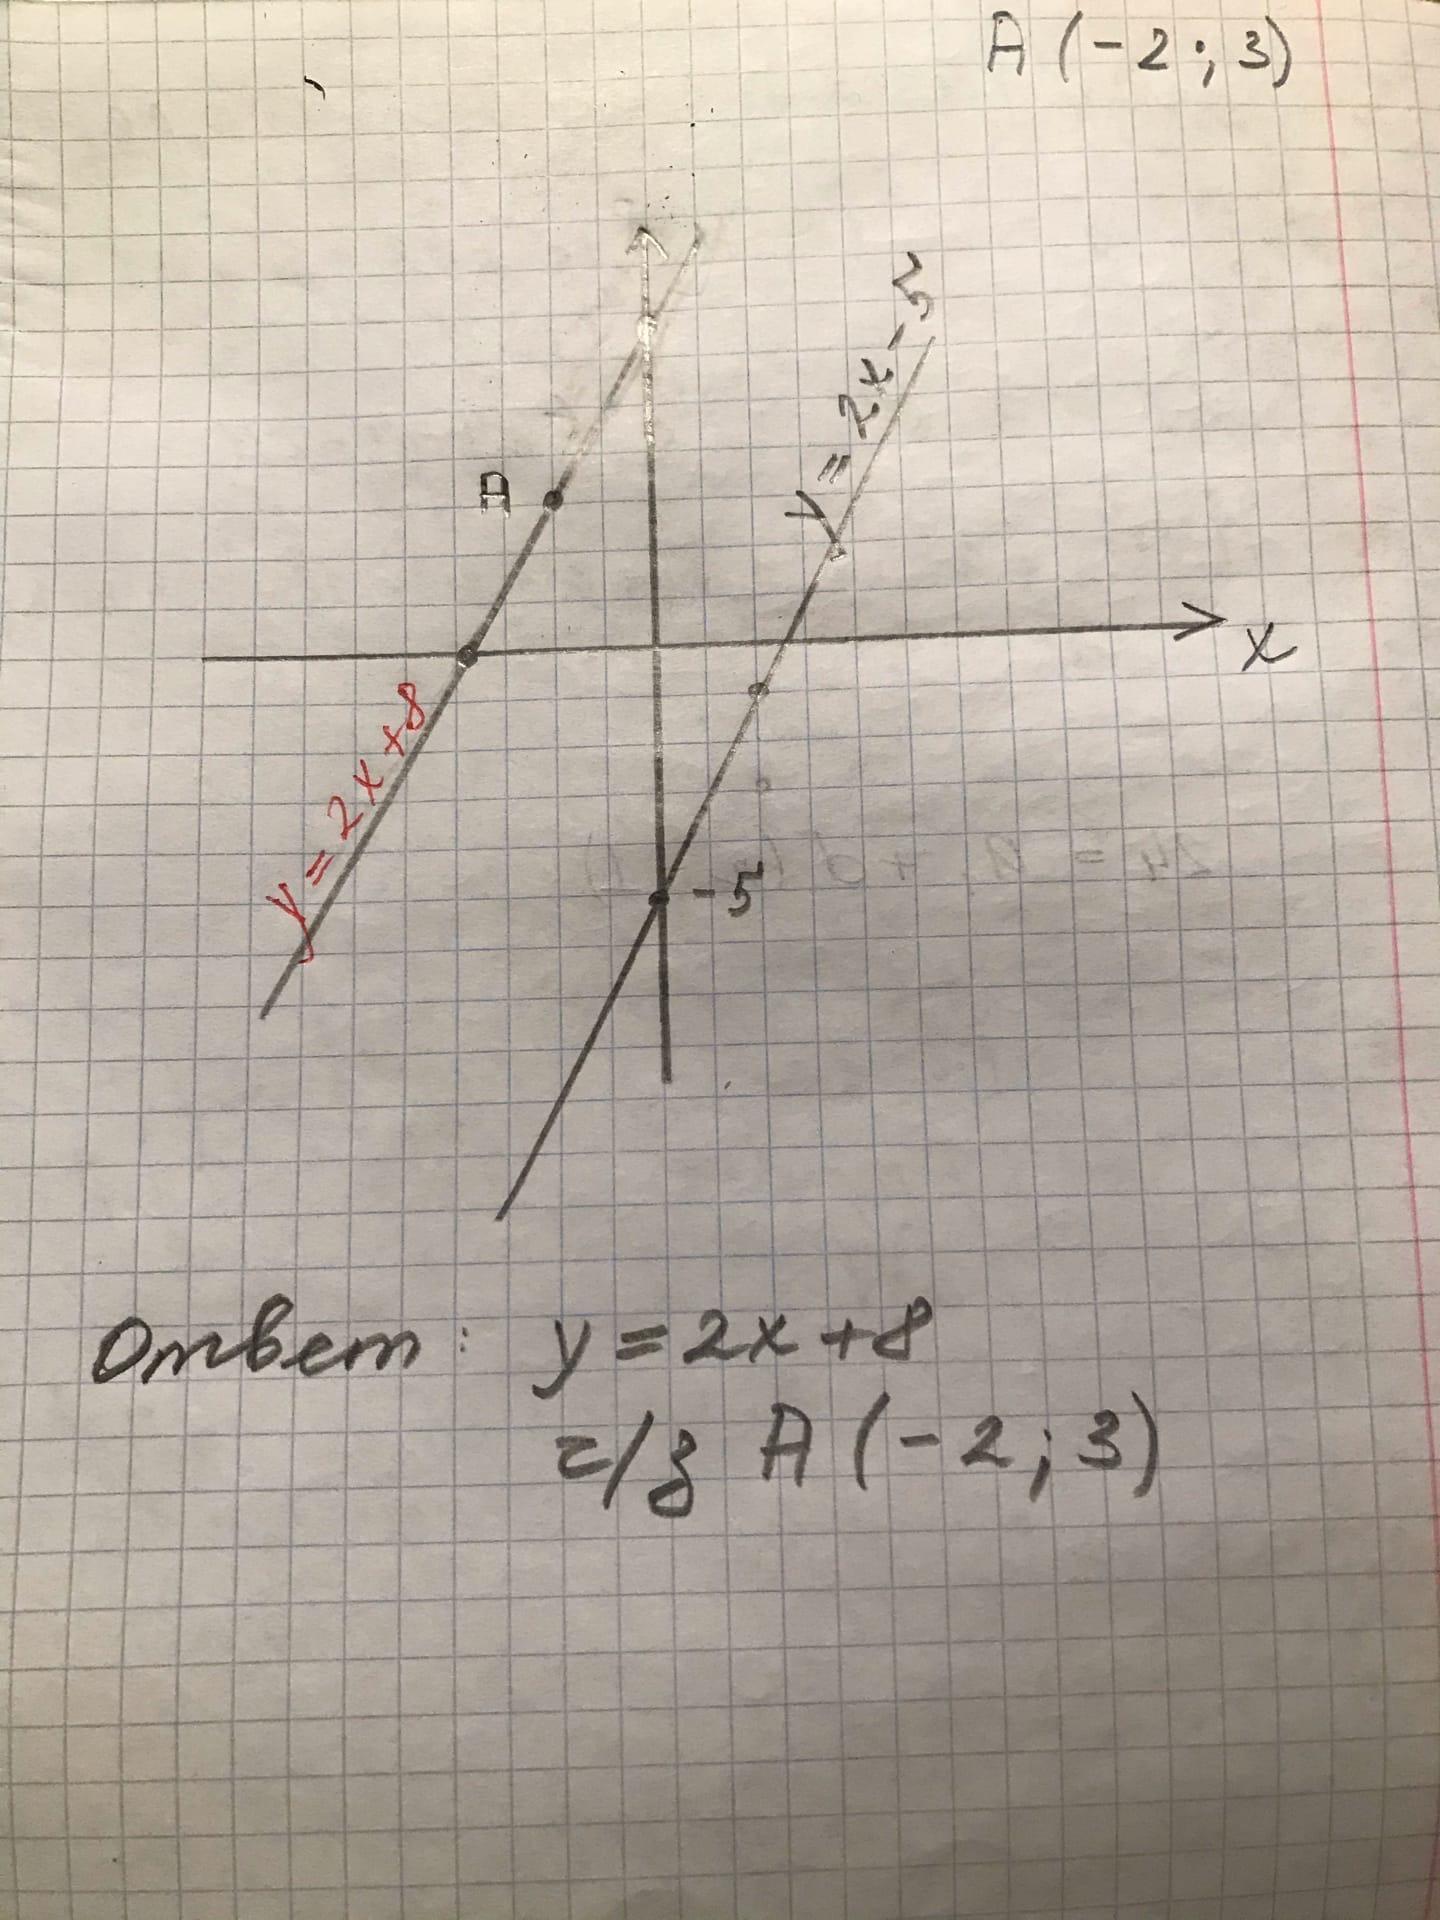 A (-2; 3)
y = 2x - 5
A
x
y = 2x + 8
-5
Ответ: y = 2x + 8
г/з A (-2; 3)